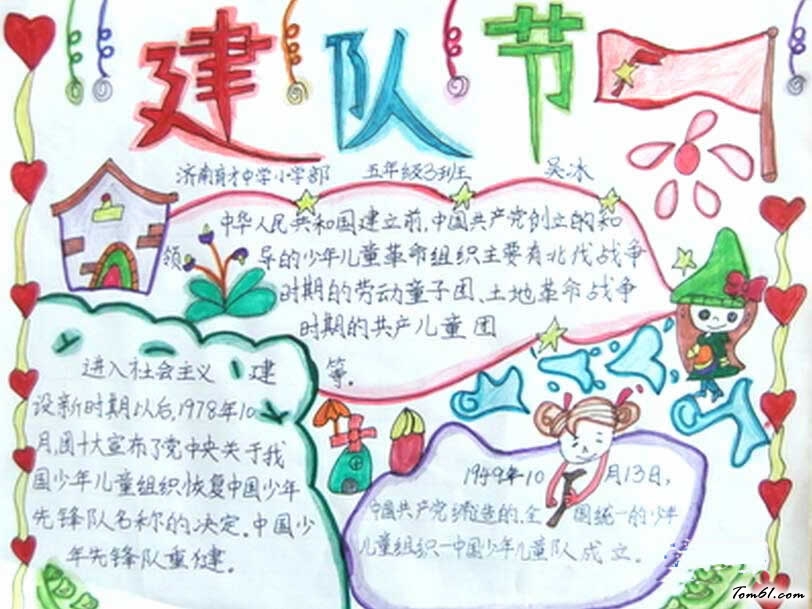 建队节
济南育才中学小学部 五年级3班 吴冰
中华人民共和国建立前,中国共产党创立的和
领 导的少年儿童革命组织主要有北伐战争
时期的劳动童子团、土地革命战争
时期的共产儿童团
等。
进入社会主义 建
设新时期以后,1978年10
月,团十大宣布了党中央关于我
国少年儿童组织恢复中国少年
先锋队名称的决定。中国少
年先锋队重建。
1949年10 月13日,
中国共产党缔造的、全 国统一的少年
儿童组织—中国少年儿童队成立。
Tom61.com